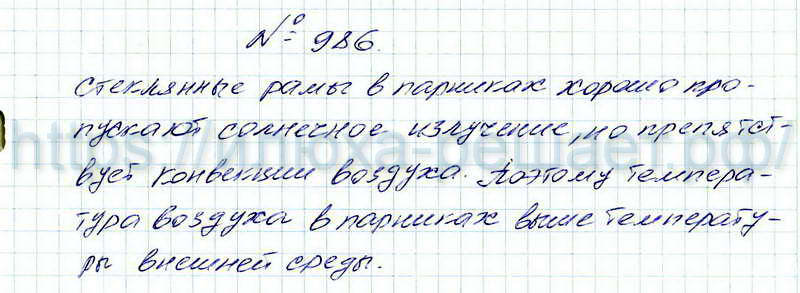 № 986.
стеклянные рамы в парниках хорошо про-
пускают солнечное излучение, но препятст-
вует конвекции воздуха. Поэтому темпера-
тура воздуха в парниках выше температу-
ры внешней среды.